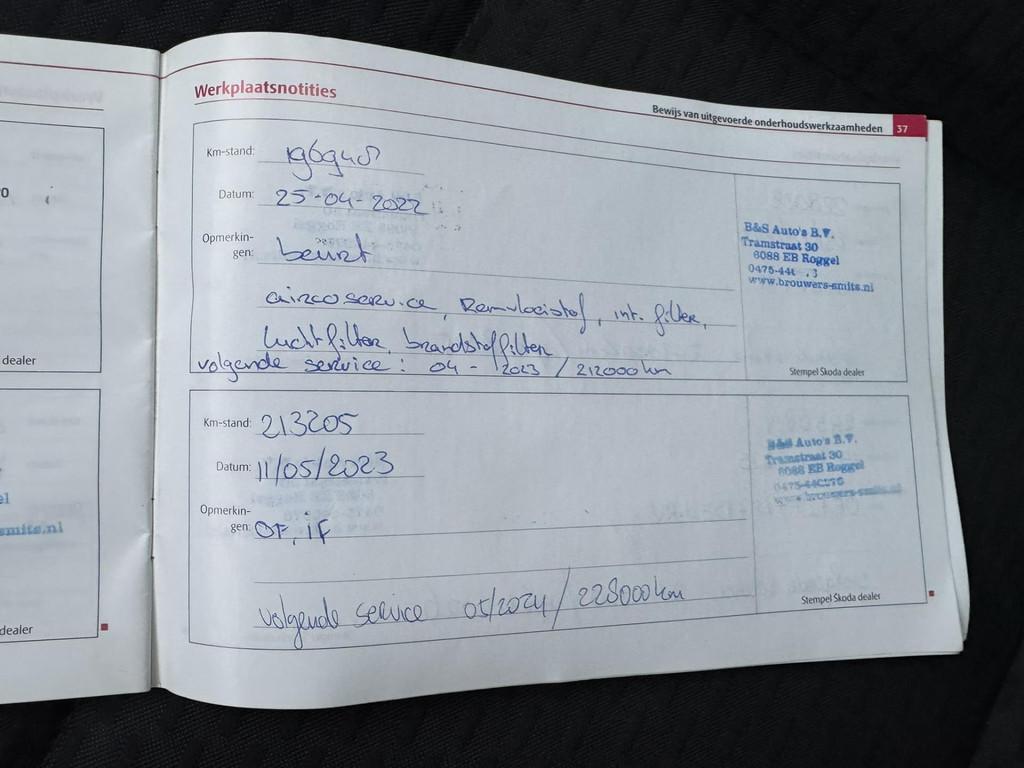 Werkplaatsnotities
Bewijs van uitgevoerde onderhoudswerkzaamheden 37
Km-stand: 196948
Datum: 25-04-2022
Opmerkin-
gen: beurt
aircoservice, Remvloeistof, int. filter,
luchtfilter, brandstoffilter
volgende service: 04 - 2023 / 212000 km
B&S Auto's B.V.
Tramstraat 30
6088 EB Roggel
www.brouwers-smits.nl
Stempel Škoda dealer
Km-stand: 213205
Datum: 11/05/2023
Opmerkin-
gen: OF, iF
volgende service 05/2024 / 228000 km
B&S Auto's B.V.
Tramstraat 30
6088 EB Roggel
www.brouwers-smits.nl
Stempel Škoda dealer
dealer
smits.nl
dealer